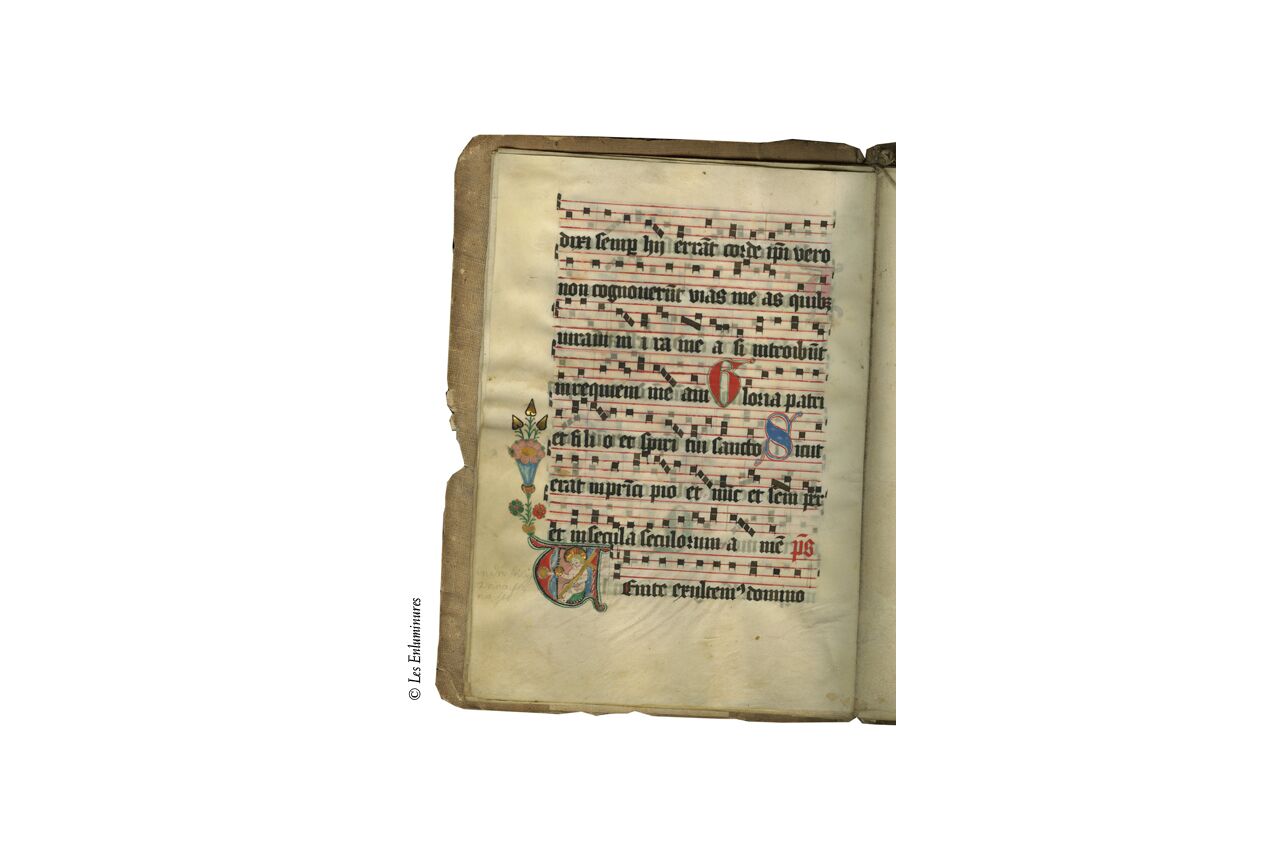 dixi semꝑ hij errāt corde ipi vero
non cognouerūt vias me as quibꝫ
iuraui in i ra me a si introibūt
in requiem me am Gloria patri
et fi li o et spiri tui sancto Sicut
erat in prīci pio et nūc et sem per
et in secula seculorum a mē p̄s
Uenite exultemꝰ domino
© Les Enluminures